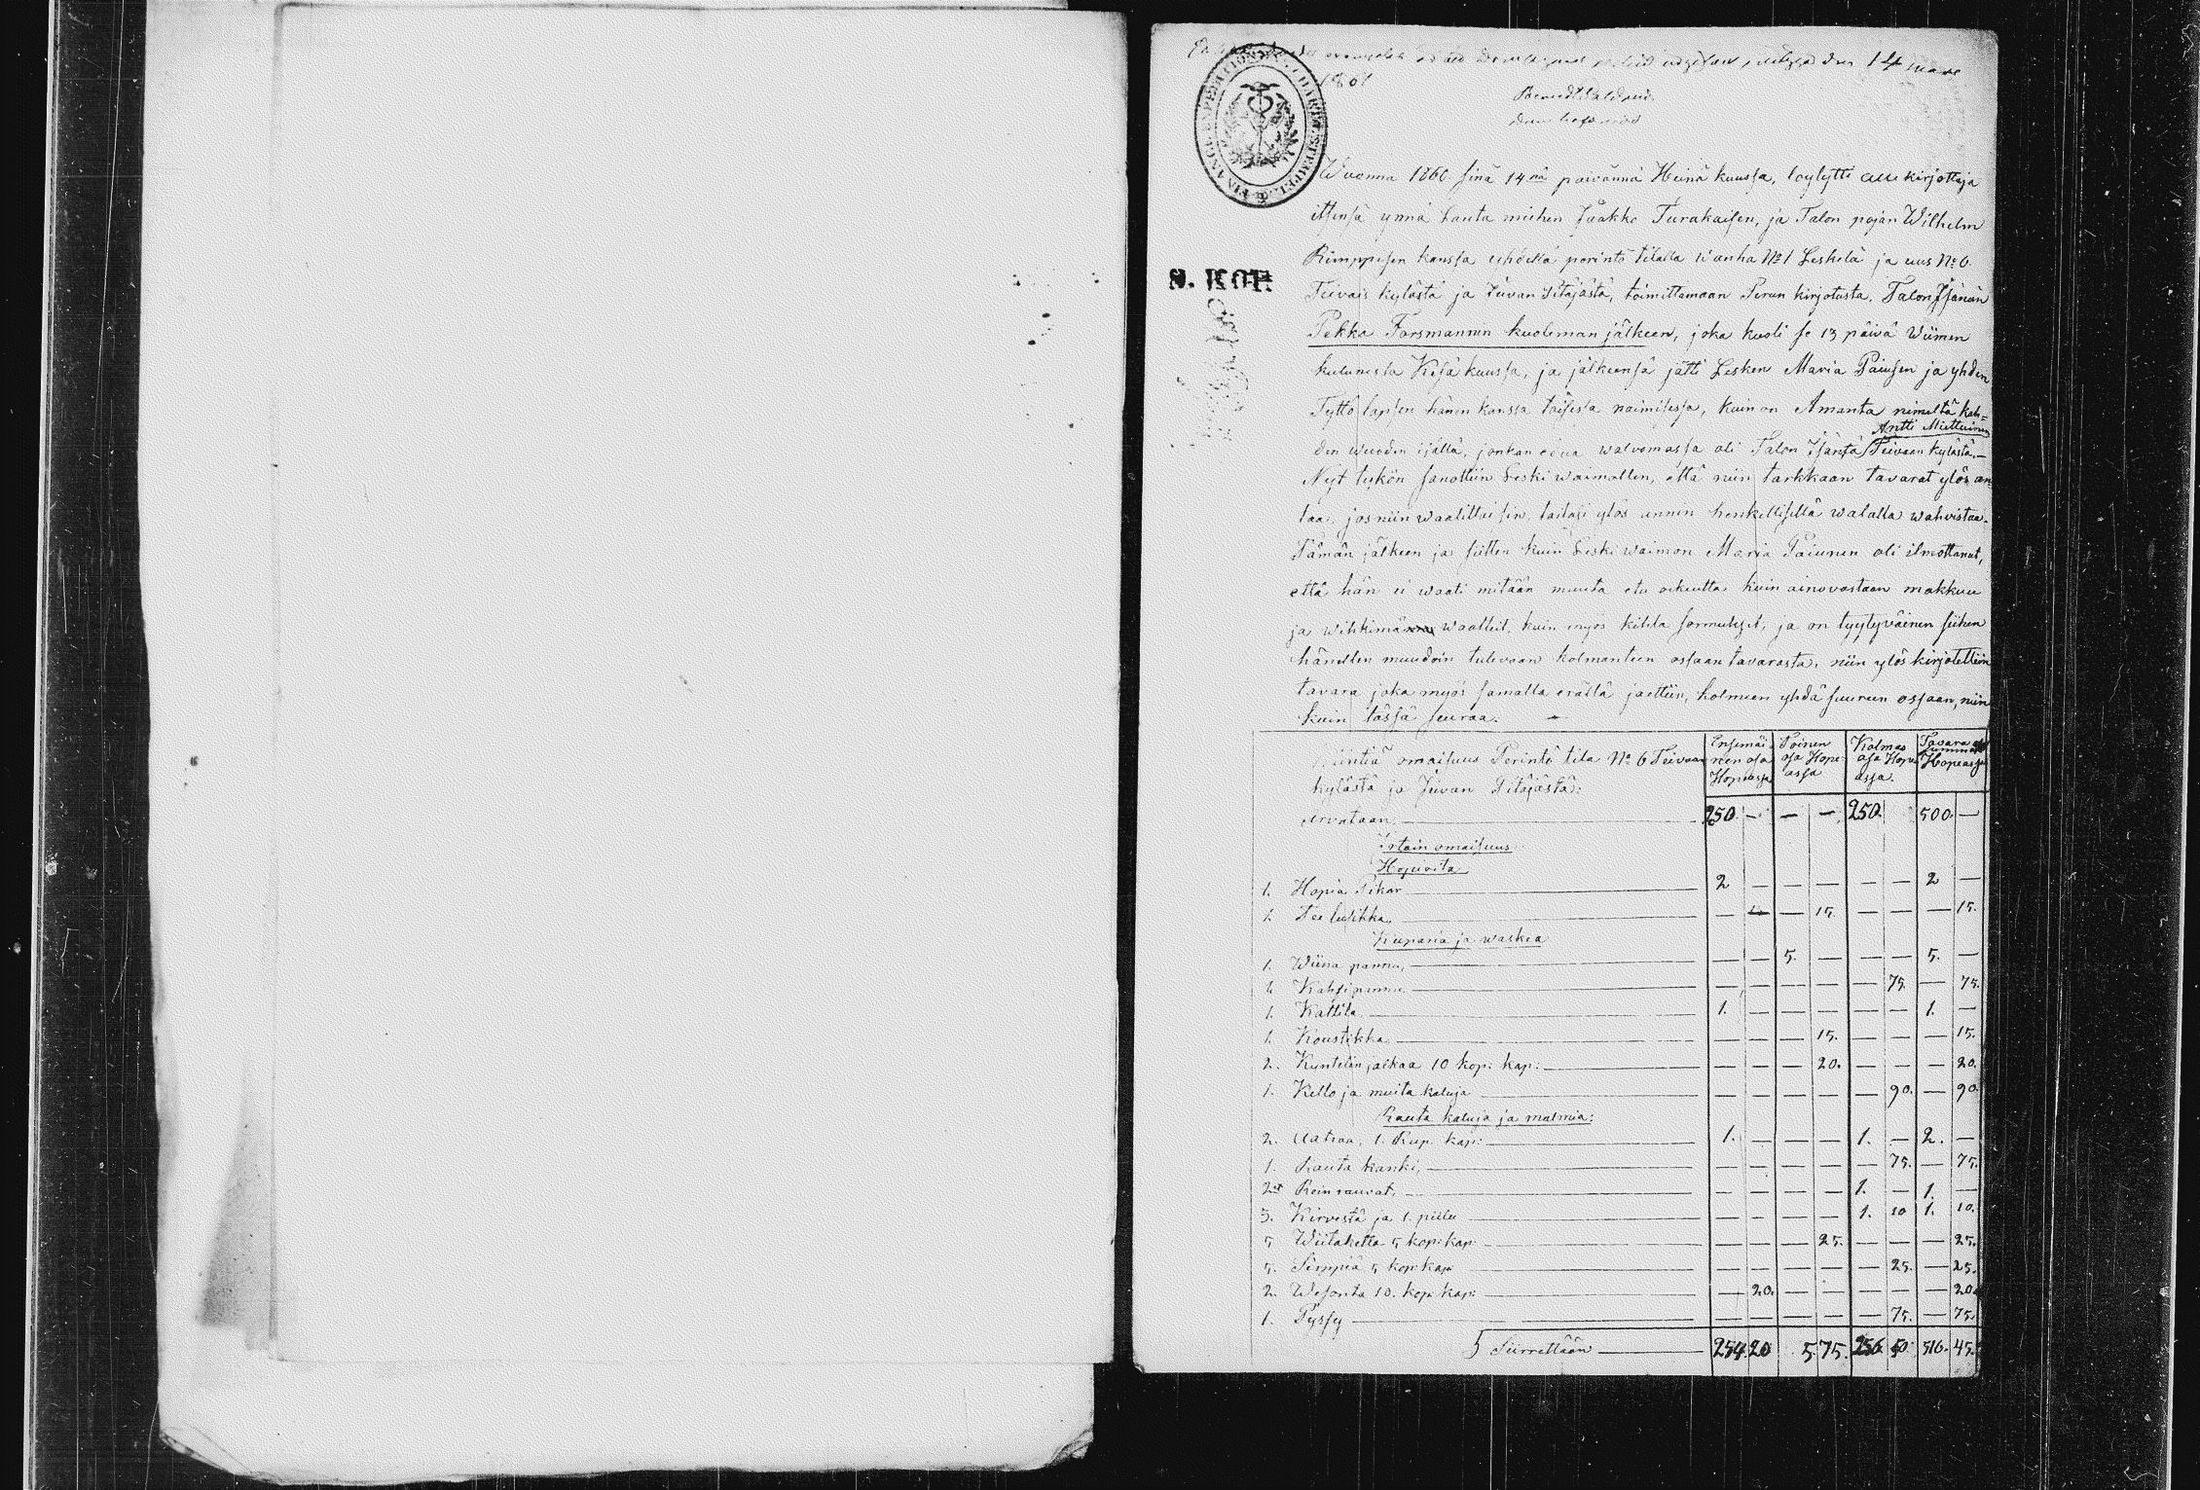 den 14 mars
1861
Wuonna 1860 sinä 14nä päivännä Heinä kuussa, löylytti allekirjottaja
ittensä ynnä lauta miehen Jaakko Turakaisen, ja Talon pojan Wilhelm
Rimppisen kanssa yhdellä perintö tilalla wanha No 1 Leskelä ja uus No 6
Teivais kylästä ja Juvan Pitäjästä, toimittamaan Perun kirjotusta, Talon Isänän
Pekka Forsmannin kuoleman jälkeen, joka kuoli se 13 päivä Wiimen
kulunesta Kesä kuussa, ja jälkeensä jätti Lesken Maria Paiusen ja yhden
Tyttö lapsen hänen kanssa toisesta naimisesta, kuin on Amanta nimeltä kah=
Antti Miettuinen
den wuoden ijällä, jonkan etua walvomassa oli Talon Isäntä Teivaan kylästä.—
Nyt tykön sanottiin Leski waimollen, että niin tarkkaan tavarat ylös an
taa, jos niin waadittaisin, taitasi ylös annin henkellisellä walalla wahvistaa.
Tämän jälkeen ja sitten kuin Leski waimon Maria Paiunen oli ilmottanut,
että hän ei waati mitään muuta etu oikeutta kuin ainovastaan makkuu
ja wihkimä waatteit, kuin myös kihla sormukset, ja on tyytyväinen siihen
hänellen muudoin tulevaan kolmanteen ossaan tavarasta, niin ylös kirjotettiin
tavara joka myös samalla erällä jaettiin, kolmeen yhdä suureen ossaan, niin
kuin tässä seuraa.
Kiintiä omaisuus Perintö tila No 6 Teivaan
kylästä ja Juvan Pitäjästä:
arvataan 250 — — — 250 500 —
Ensimäinen osa Hopiassa
Toinen osa Hopeassa
Kolmas osa Hopeassa
Tavara Summa Hopeassa
Irtain omaisuus
Hopioita
1. Hopia Pikar 2 — — — — — 2 —
1. Tee lusikka — — — 15. — — — 15.
Kuparia ja waskea
1. Wiina pannu, — — 5. — — — 5. —
1. Kahfipannu — — — — — 75. — 75.
1. Kattila 1. — — — — — 1. —
1. Koustikka — — — 15. — — — 15.
2. Kyntelin jalkaa 10 kop: kap: — — — 20. — — — 20.
1. Kello ja muita kaluja — — — — — 90. — 90.
Rauta kaluja ja malmia:
2. Aatraa, 1. Rup. kap: 1. — — — 1. — 2. —
1. Rauta kanki, — — — — — 75. — 75.
2et Reinrauvat. — — — — 1. — 1. —
3. Kirvestä ja 1. piilu — — — — 1. 10 1. 10.
5 Wiitaketta 5 kop: kap — — — 25. — — — 25.
5. Sirppiä 5 kop: kap — — — — — 25. — 25.
2. Wesonta 10. kop. kap: — 20. — — — — — 20.
1. Pyssy — — — — — 75. — 75.
Siirrettään 254. 20 5. 75. 256 50 516. 45.